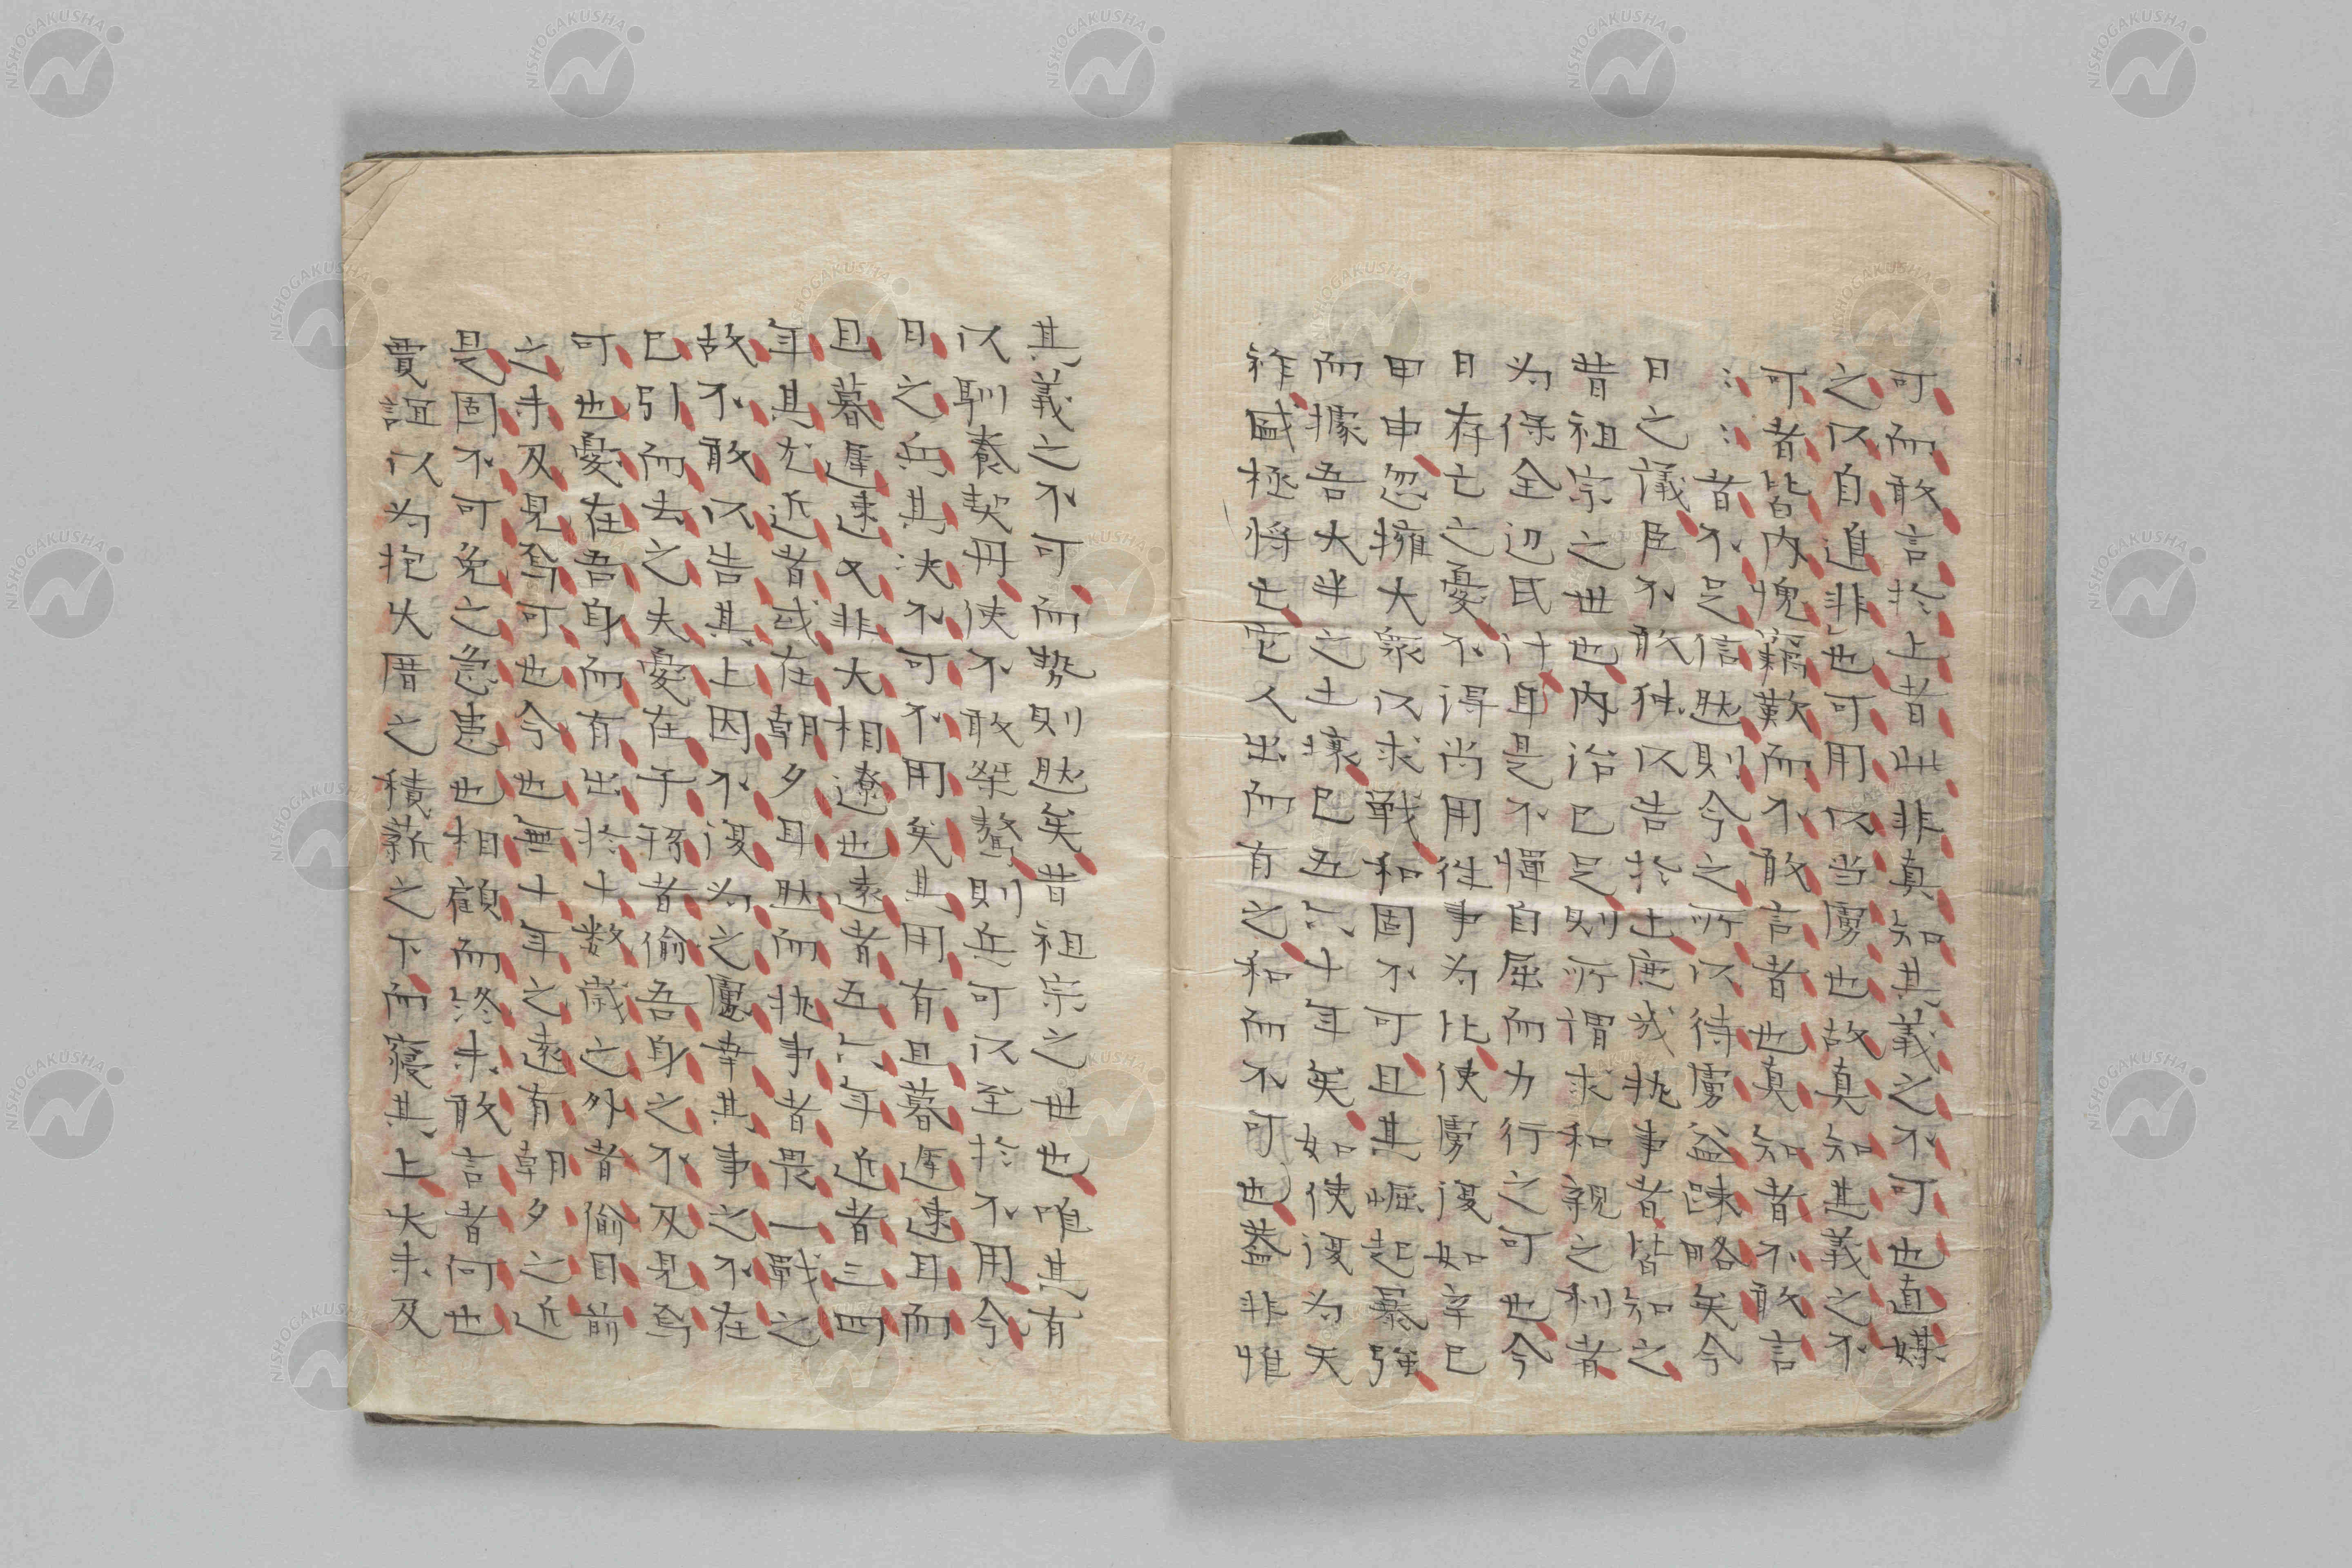 可而敢言於上者此非真知其義之不可也直媒
之以自進非也可用以当虜也故真知其義之不
可者皆内愧竊歎而不敢言者也真知者不敢言
：：者不足信然則今之所以待虜益踈略矣今
日之議臣不敢独以告於上庶或执事者皆知之
昔祖宗之世也内治已足則所謂求和親之利者
为保全辺民計耳是不憚自屈而力行之可也今
日存亡之憂不得尚用徃事为比使虜復如辛巳
甲申忽擁大衆以求戦和固不可且其崛起暴強
而據吾大半之土壤已五六十年矣如使復为天
祚國極将亡它人出而有之和而不可也盖非惟
其義之不可而勢則然矣昔祖宗之世也唯其有
以馴養契丹使不敢桀驁則兵可以至於不用今
日之兵其决不可不用矣其用有旦暮遅速耳而
旦暮遅速又非大相遼也遠者五六年近者三四
年其尤近者或在朝夕耳然而执事者畏一戦之
故不敢以告其上因不復为之慮幸其事之不在
已引而去之夫憂在子孫者偷吾身之不及見焉
可也憂在吾身而有出於十数歳之外者偷目前
之未及見焉可也今也無十年之遠有朝夕之近
是固不可免之急患也相顧而終未敢言者何也
賈誼以为抱火厝之積薪之下而寝其上火未及